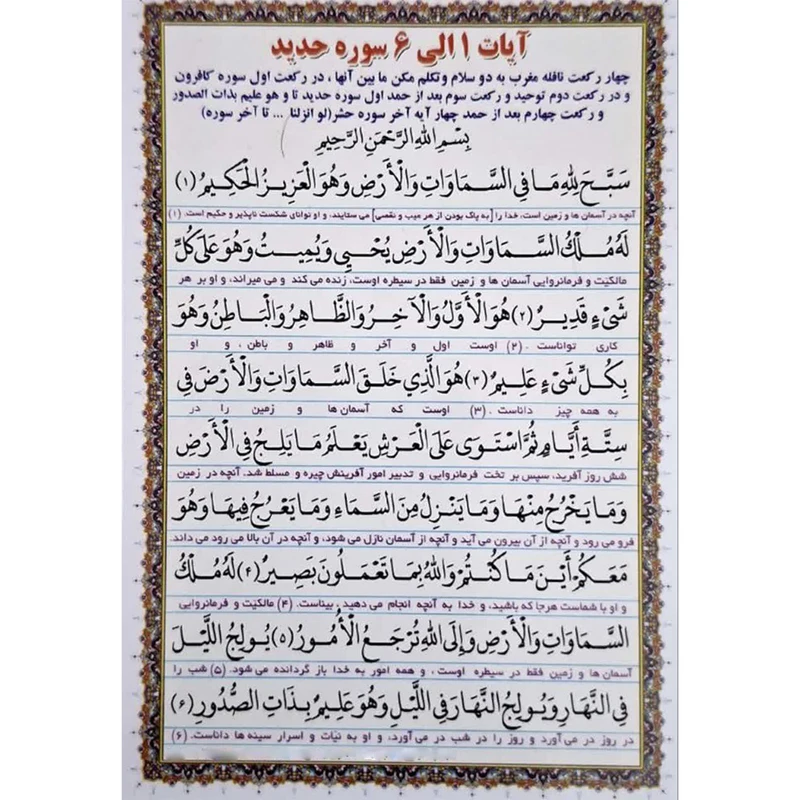 آیات ۱ الی ۶ سوره حدید
چهار رکعت نافله مغرب به دو سلام وتکلم مکن ما بین آنها ، در رکعت اول سوره کافرون
و در رکعت دوم توحید و رکعت سوم بعد از حمد اول سوره حدید تا و هو علیم بذات الصدور
و رکعت چهارم بعد از حمد چهار آیه آخر سوره حشر(لو انزلنا ... تا آخر سوره)
بِسْمِ اللهِ الرَّحْمَنِ الرَّحِيمِ
سَبَّحَ لِلَّهِ مَا فِي السَّمَاوَاتِ وَالْأَرْضِ وَهُوَ الْعَزِيزُ الْحَكِيمُ (۱)
آنچه در آسمان ها و زمین است، خدا را [به پاک بودن از هر عیب و نقصی] می ستایند، و او توانای شکست ناپذیر و حکیم است. (۱)
لَهُ مُلْكُ السَّمَاوَاتِ وَالْأَرْضِ يُحْيِي وَيُمِيتُ وَهُوَ عَلَى كُلِّ
مالکیّت و فرمانروایی آسمان ها و زمین فقط در سیطره اوست، زنده می کند و می میراند، و او بر هر
شَيْءٍ قَدِيرٌ (۲) هُوَ الْأَوَّلُ وَالْآخِرُ وَالظَّاهِرُ وَالْبَاطِنُ وَهُوَ
کاری تواناست. (۲) اوست اول و آخر و ظاهر و باطن، و او
بِكُلِّ شَيْءٍ عَلِيمٌ (۳) هُوَ الَّذِي خَلَقَ السَّمَاوَاتِ وَالْأَرْضَ فِي
به همه چیز داناست. (۳) اوست که آسمان ها و زمین را در
سِتَّةِ أَيَّامٍ ثُمَّ اسْتَوَى عَلَى الْعَرْشِ يَعْلَمُ مَا يَلِجُ فِي الْأَرْضِ
شش روز آفرید، سپس بر تخت فرمانروایی و تدبیر امور آفرینش چیره و مسلط شد. آنچه در زمین
وَمَا يَخْرُجُ مِنْهَا وَمَا يَنْزِلُ مِنَ السَّمَاءِ وَمَا يَعْرُجُ فِيهَا وَهُوَ
فرو می رود و آنچه از آن بیرون می آید و آنچه از آسمان نازل می شود، و آنچه در آن بالا می رود می داند.
مَعَكُمْ أَيْنَ مَا كُنْتُمْ وَاللَّهُ بِمَا تَعْمَلُونَ بَصِيرٌ (۴) لَهُ مُلْكُ
و او با شماست هرجا که باشید، و خدا به آنچه انجام می دهید، بیناست. (۴) مالکیّت و فرمانروایی
السَّمَاوَاتِ وَالْأَرْضِ وَإِلَى اللَّهِ تُرْجَعُ الْأُمُورُ (۵) يُولِجُ اللَّيْلَ
آسمان ها و زمین فقط در سیطره اوست، و همه امور به خدا باز گردانده می شود. (۵) شب را
فِي النَّهَارِ وَيُولِجُ النَّهَارَ فِي اللَّيْلِ وَهُوَ عَلِيمٌ بِذَاتِ الصُّدُورِ (۶)
در روز در می آورد و روز را در شب در می آورد، و او به نیّات و اسرار سینه ها داناست. (۶)